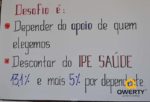 Desafio é:
• Depender do apoio de quem
elegemos
• Descontar do IPE SAÚDE
13,1% e mais 5% por dependente
QWERTY